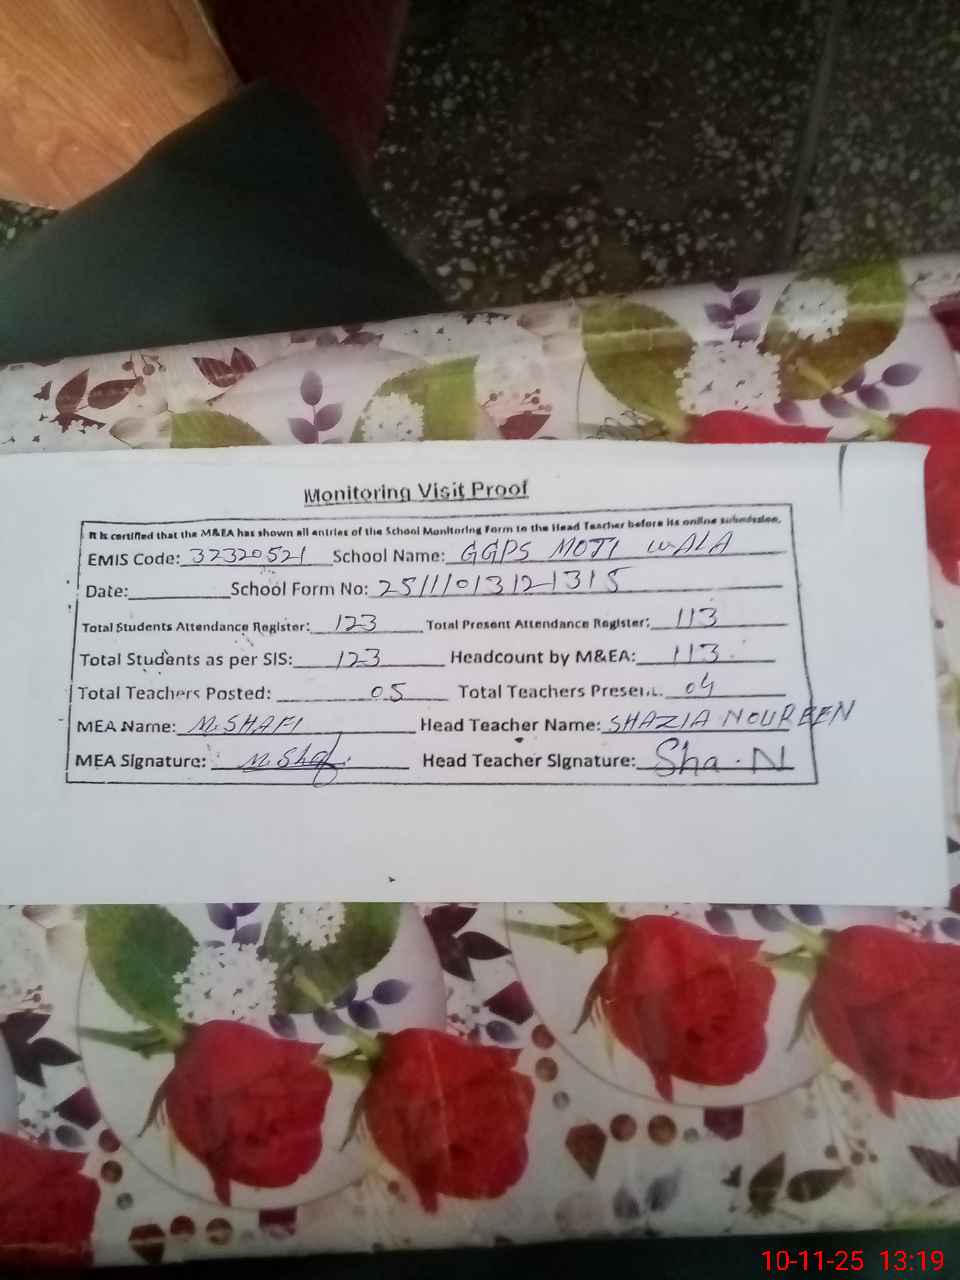 Monitoring Visit Proof
It is certified that the M&EA has shown all entries of the School Monitoring Form to the Head Teacher before its online submission.
EMIS Code: 32320521 School Name: GGPS MOTI WALA
Date:__________ School Form No: 25111013121315
Total Students Attendance Register: 123 Total Present Attendance Register: 113
Total Students as per SIS: 123 Headcount by M&EA: 113
Total Teachers Posted: 05 Total Teachers Present: 04
MEA Name: M.SHAFI Head Teacher Name: SHAZIA NOUREEN
MEA Signature: M Shaf Head Teacher Signature: Sha . N
10-11-25 13:19